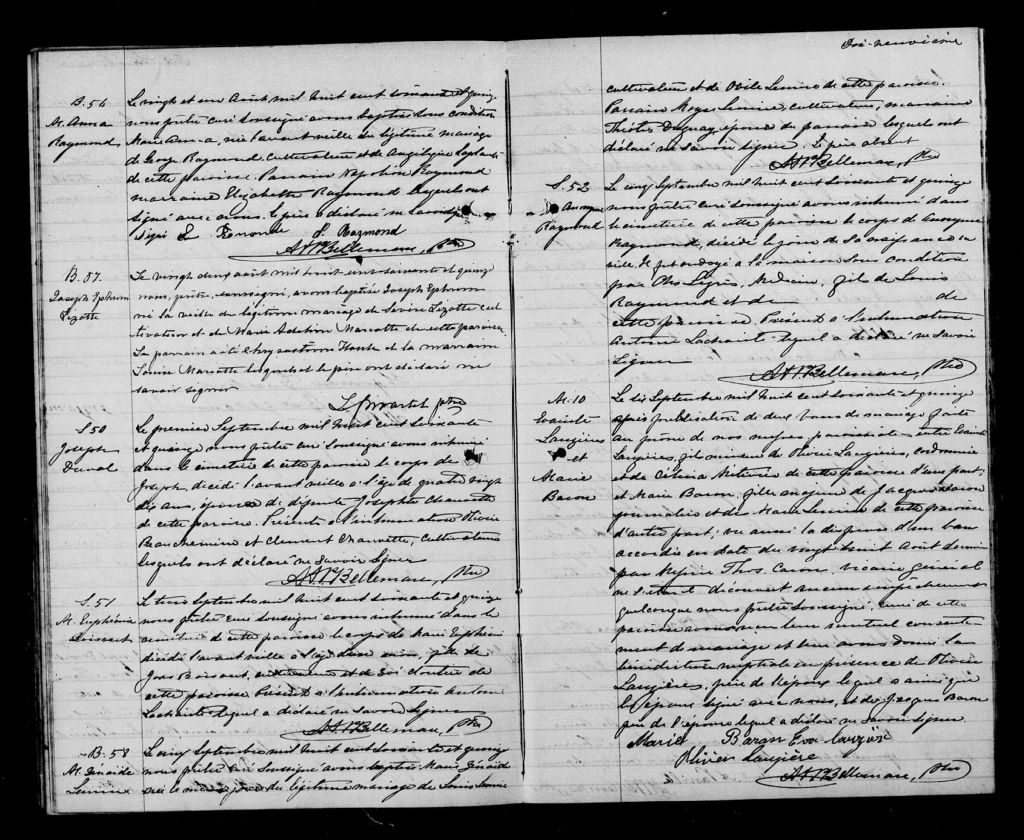 B. 56
M. Anna
Raymond
Le vingt et un Août mil huit cent soixante et quinze
nous prêtre curé soussigné avons baptisé sous condition
Marie Anna, née l'avant veille du légitime mariage
de George Raymond cultivateur et de Angélique
de cette paroisse. Parrain Napoléon Raymond
marraine Elizabeth Raymond lesquels ont
signé avec nous. Le père a déclaré ne savoir
signé
Raymond
A. H. Bellemare, Ptre
B. 57.
Joseph Ephrem
Lizotte
Le vingt deux août mil huit cent soixante et quinze
nous, prêtre, soussigné, avons baptisé Joseph Ephrem
né la veille du légitime mariage de Sévère Lizotte cul
tivateur et de Marie Adeline Marcotte de cette paroisse.
Le parrain a été Chrysostome et la marraine
Louise Marcotte lesquels et le père ont déclaré ne
savoir signer
ptre
S. 50
Joseph
Duval
Le premier Septembre mil huit cent soixante
et quinze nous prêtre curé soussigné avons inhumé
dans le cimetière de cette paroisse le corps de
Joseph, décédé l'avant veille à l'âge de quatre vingt
dix ans, époux de défunte Josephte Chauvette
de cette paroisse. Présents à l'inhumation Olivier
Beauchemin et Clement Chauvette, cultivateurs
lesquels ont déclaré ne savoir signer
A. H. Bellemare, Ptre
S. 51
M. Euphémie
Boisvert
Le trois Septembre mil huit cent soixante et quinze
nous prêtre curé soussigné avons inhumé dans le
cimetière de cette paroisse le corps de Marie Euphémie
décédé l'avant veille à l'âge d'un an, fille de
Boisvert, et de de
cette paroisse Présent à l'inhumation Antoine
lequel a déclaré ne savoir signer
A. H. Bellemare, Ptre
B. 58
M. Zénaïde
Lemire
Le cinq Septembre mil huit cent soixante et quinze
nous prêtre curé soussigné avons baptisé Marie Zénaïde
née le même jour du légitime mariage de Louis Lemire
Dix-neuvième
cultivateur et de Odile Lemire de cette paroisse.
Parrain Lemire, cultivateur, marraine
Duguay, épouse du parrain lesquels ont
déclaré ne savoir signer. Le père absent
A. H. Bellemare, Ptre
S. 52
Anonyme
Raymond
Le cinq Septembre mil huit cent soixante et quinze
nous prêtre curé soussigné avons inhumé dans
le cimetière de cette paroisse le corps de Anonyme
Raymond, décédé le jour de sa naissance la
veille. Il fut ondoyé à la maison sous condition
par Médecin, fils de Louis
Raymond et de de
cette paroisse. Présent à l'inhumation
Antoine lequel a déclaré ne savoir
signer
A. H. Bellemare, Ptre
M. 10
Evariste
Laugières
et
Marie
Baron
Le dix Septembre mil huit cent soixante et quinze
après publication de deux bans de mariage faite
au prône de nos messes paroissiales entre Evariste
Laugières, fils mineur de Olivier Laugières, cordonnier
et de Célina de cette paroisse d'une part,
et Marie Baron, fille majeure de Jacques Baron
journalier et de Marie Lemire de cette paroisse
d'autre part; vu aussi la dispense d'un ban
accordée en date du vingt huit Août dernier
par Messire Thos. Caron vicaire général
ne s'étant découvert aucun empêchement
quelconque nous prêtre soussigné, curé de cette
paroisse avons reçu leur mutuel consente
ment de mariage et leur avons donné la
bénédiction nuptiale en présence de Olivier
Laugières, père de l'époux lequel a ainsi que
les époux signé avec nous, et de Jacques Baron
père de l'épouse lequel a déclaré ne savoir signer.
Marie Baron
Olivier Laugière
A. H. Bellemare, Ptre